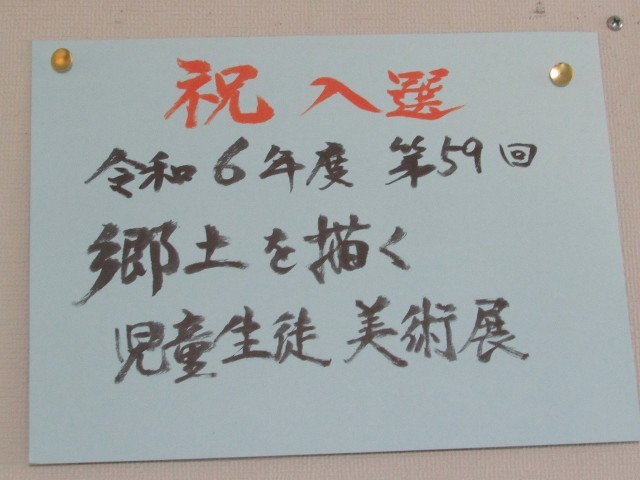 祝 入選
令和6年度 第59回
郷土を描く
児童生徒 美術展